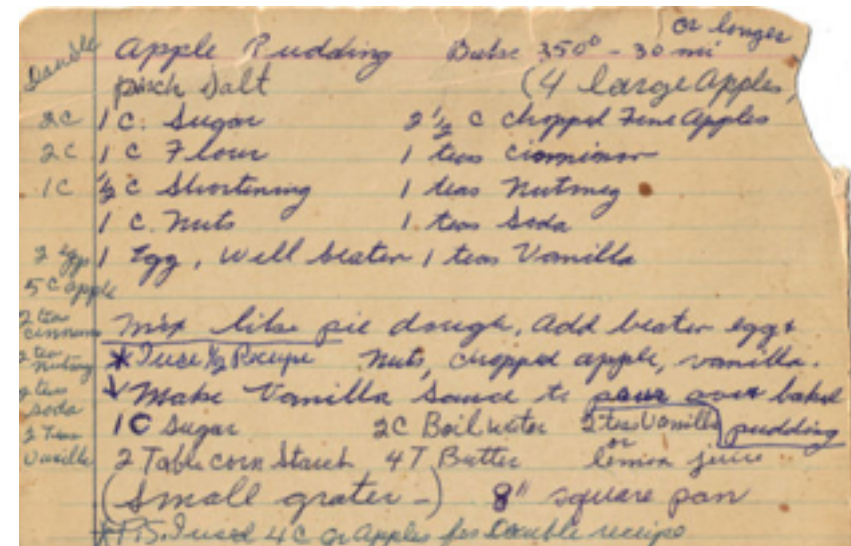 or longer
Double Apple Pudding Bake 350° - 30 mi
pinch Salt (4 large Apples,
2C 1 C. Sugar 2 1/2 C chopped Fine Apples
2C 1 C Flour 1 teas Cinnimon
1C 1/2 C Shortening 1 teas Nutmeg
1 C. Nuts 1 teas Soda
2 Eggs 1 Egg, Well beaten 1 teas Vanilla
5 C apple
2 tea cinnimon Mix like pie dough, add beaten egg +
2 tea nutmeg * I use 1/2 Recipe Nuts, chopped apple, vanilla.
2 teas soda Make Vanilla Sauce to pour over baked
1 C Sugar 2C Boil water 2 teas Vanilla pudding
2 Teas Vanilla or
2 Table corn Starch 4 T Butter lemon juice
(Small grater -) 8" square pan
* P.S. I used 4 C Gr Apples for Double recipe